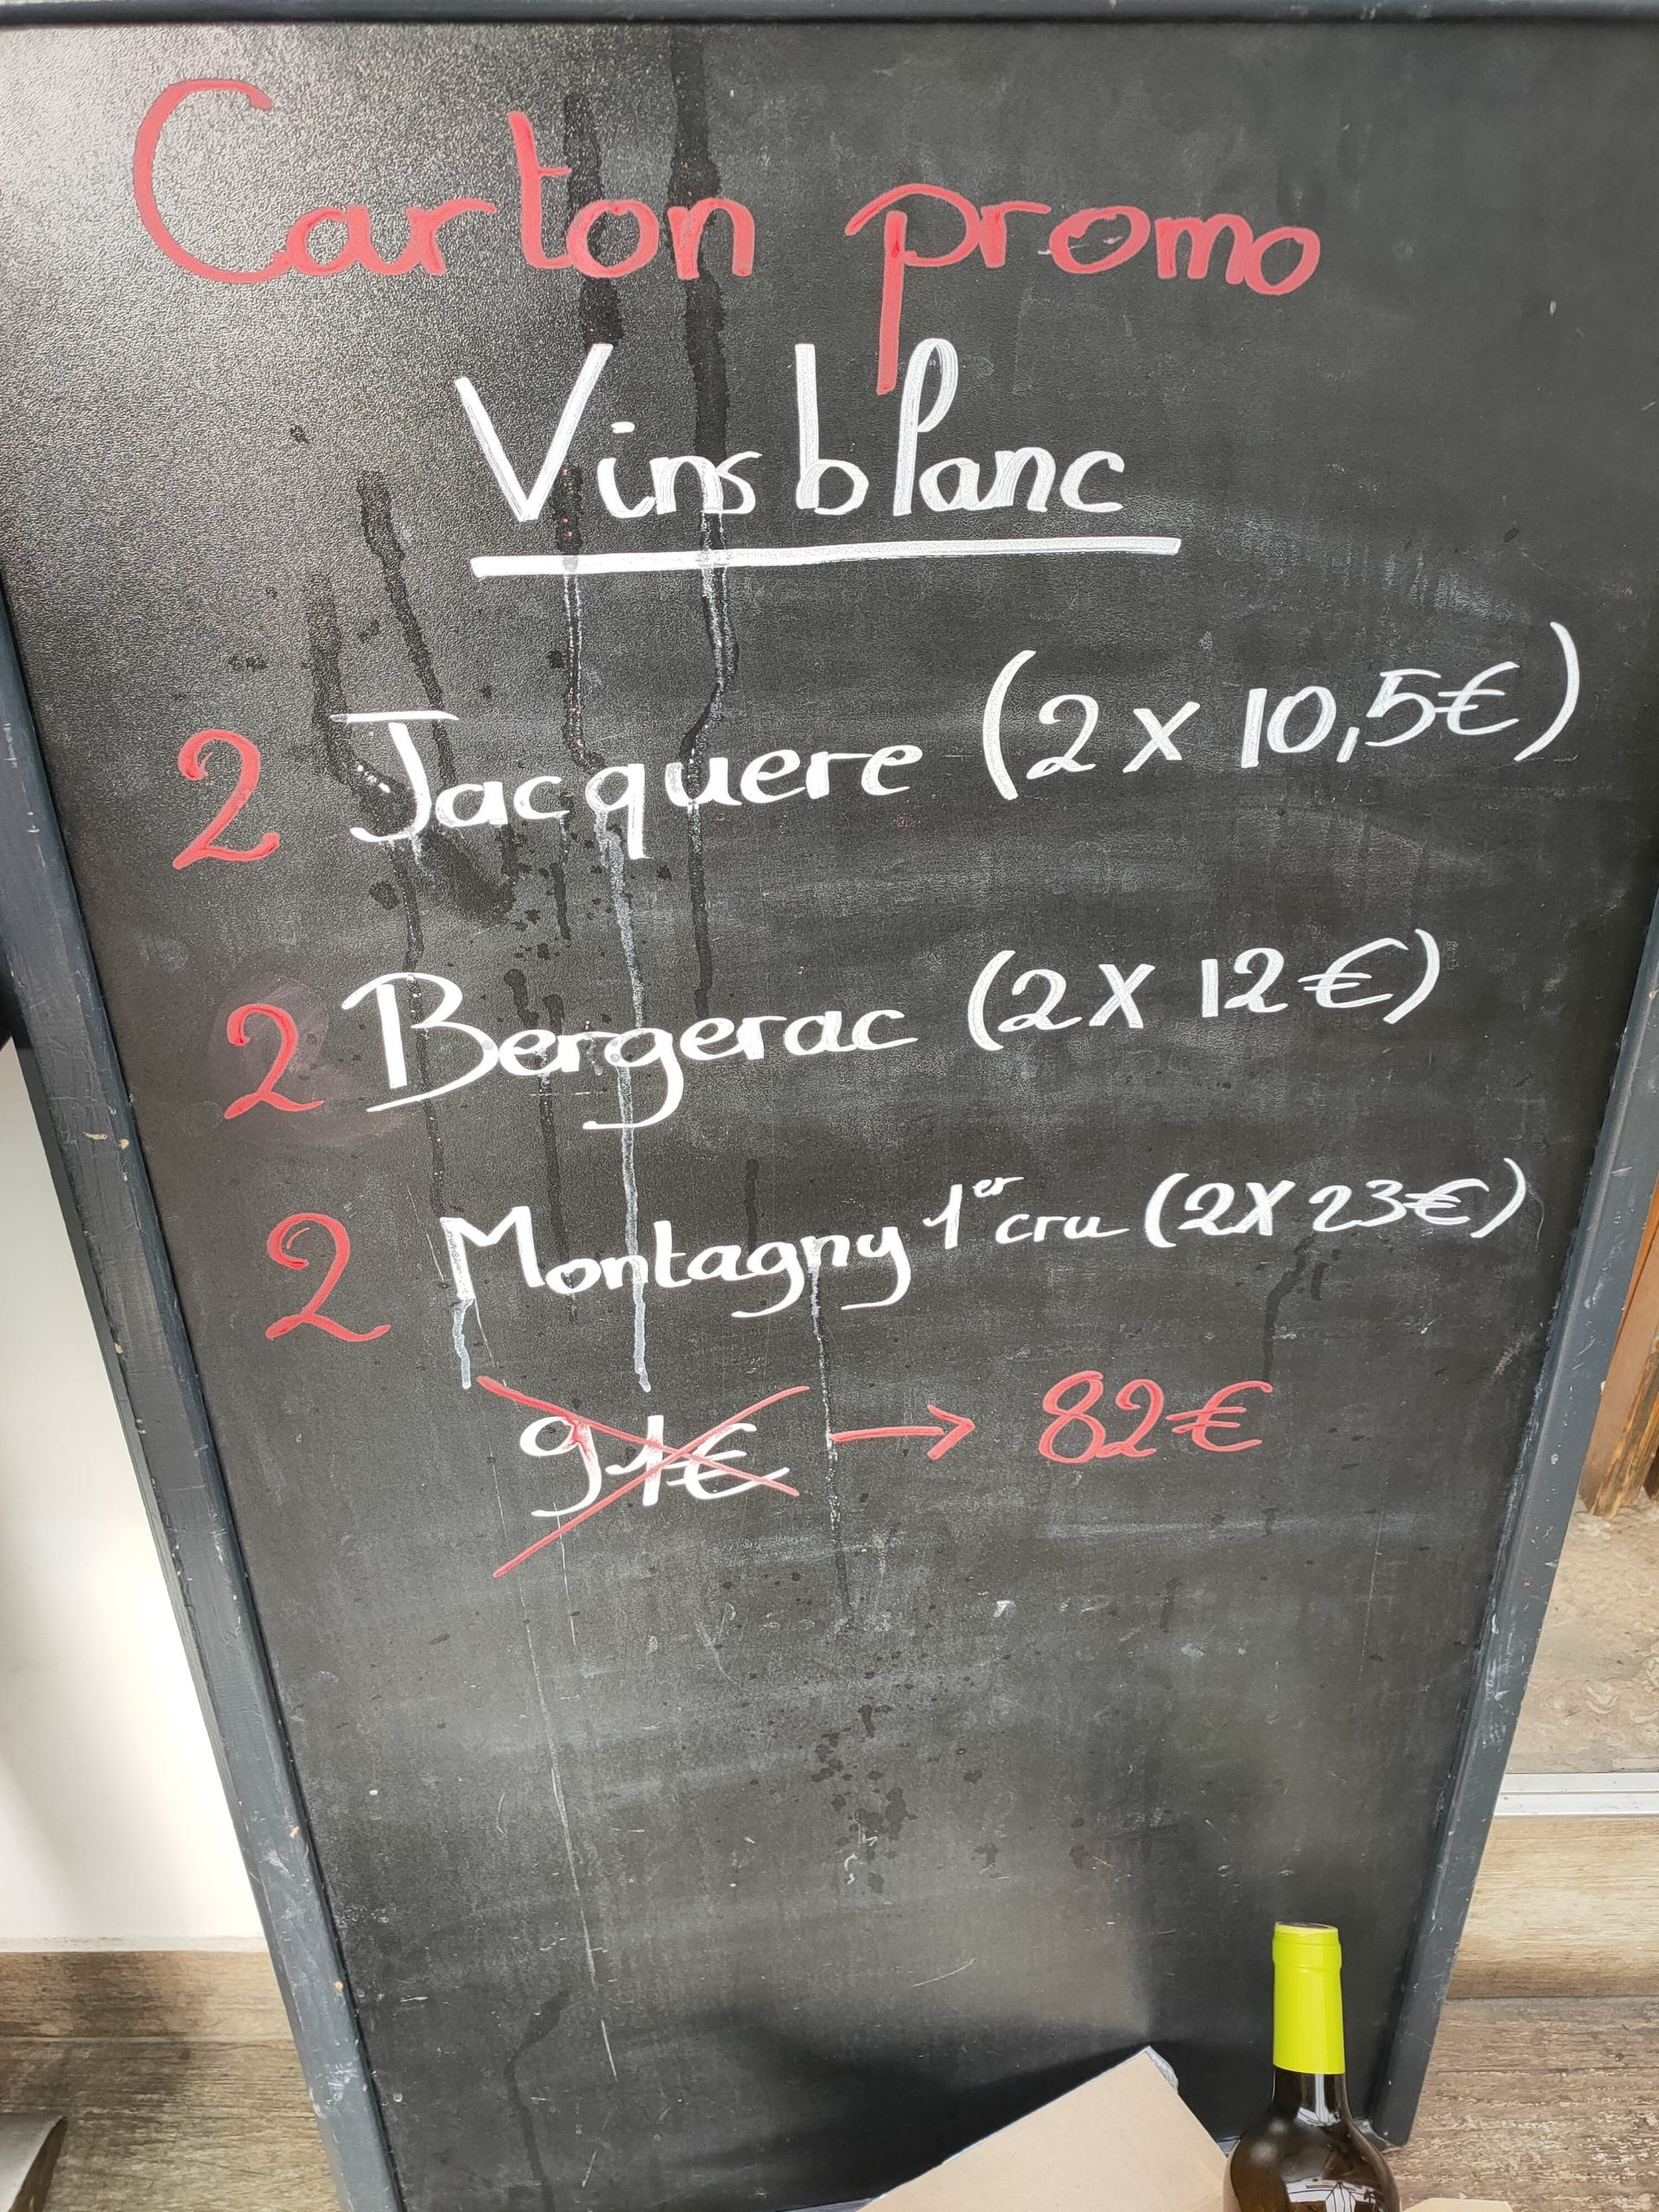 Carton promo
Vins blanc
2 Jacquere (2 x 10,5€)
2 Bergerac (2 X 12€)
2 Montagny 1er cru (2X23€)
91€ → 82€